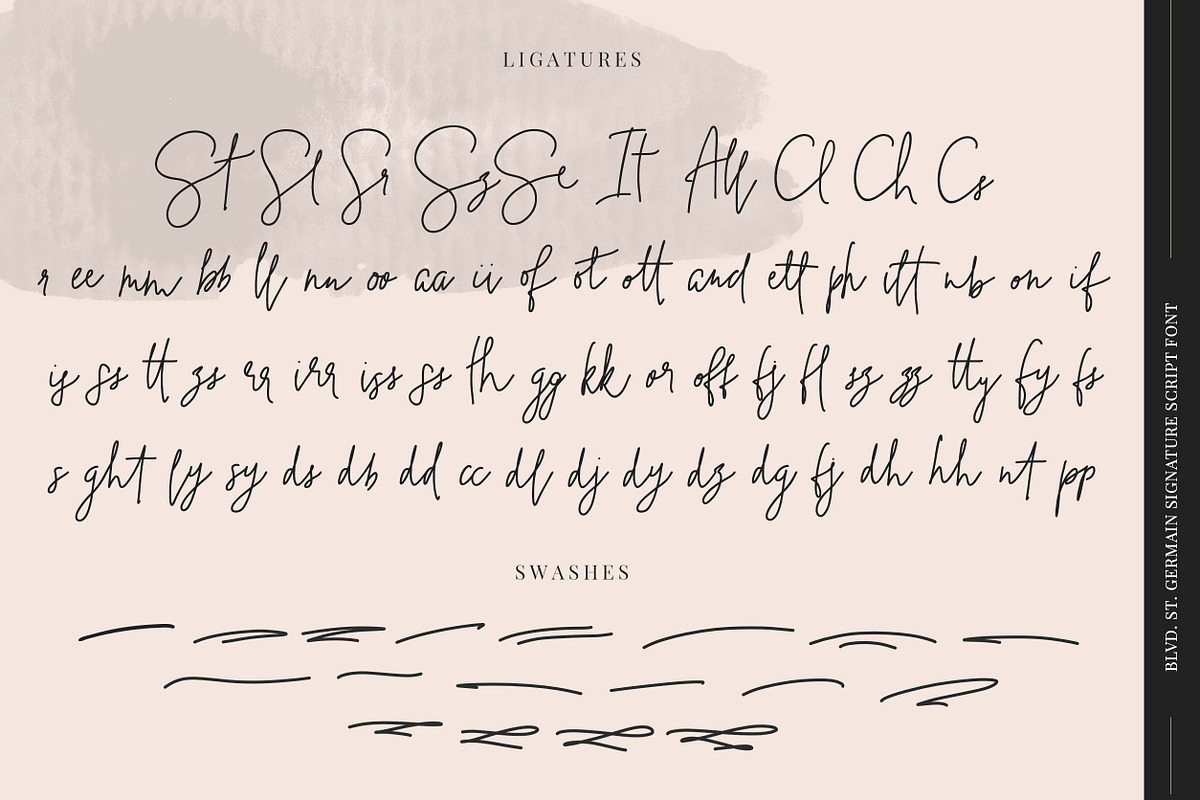 LIGATURES
St Sl Sr Sz Se It All Cl Ch Cs
r ee mm bb ll nn oo aa ii of ot ott and ett ph itt nb on if
is ss tt zs rr irr iss ss th gg kk or off fj fl sz zz tty fy fs
s ght ly sy ds db dd cc dl dj dy dz dg fj dh hh nt pp
SWASHES
BLVD. ST. GERMAIN SIGNATURE SCRIPT FONT